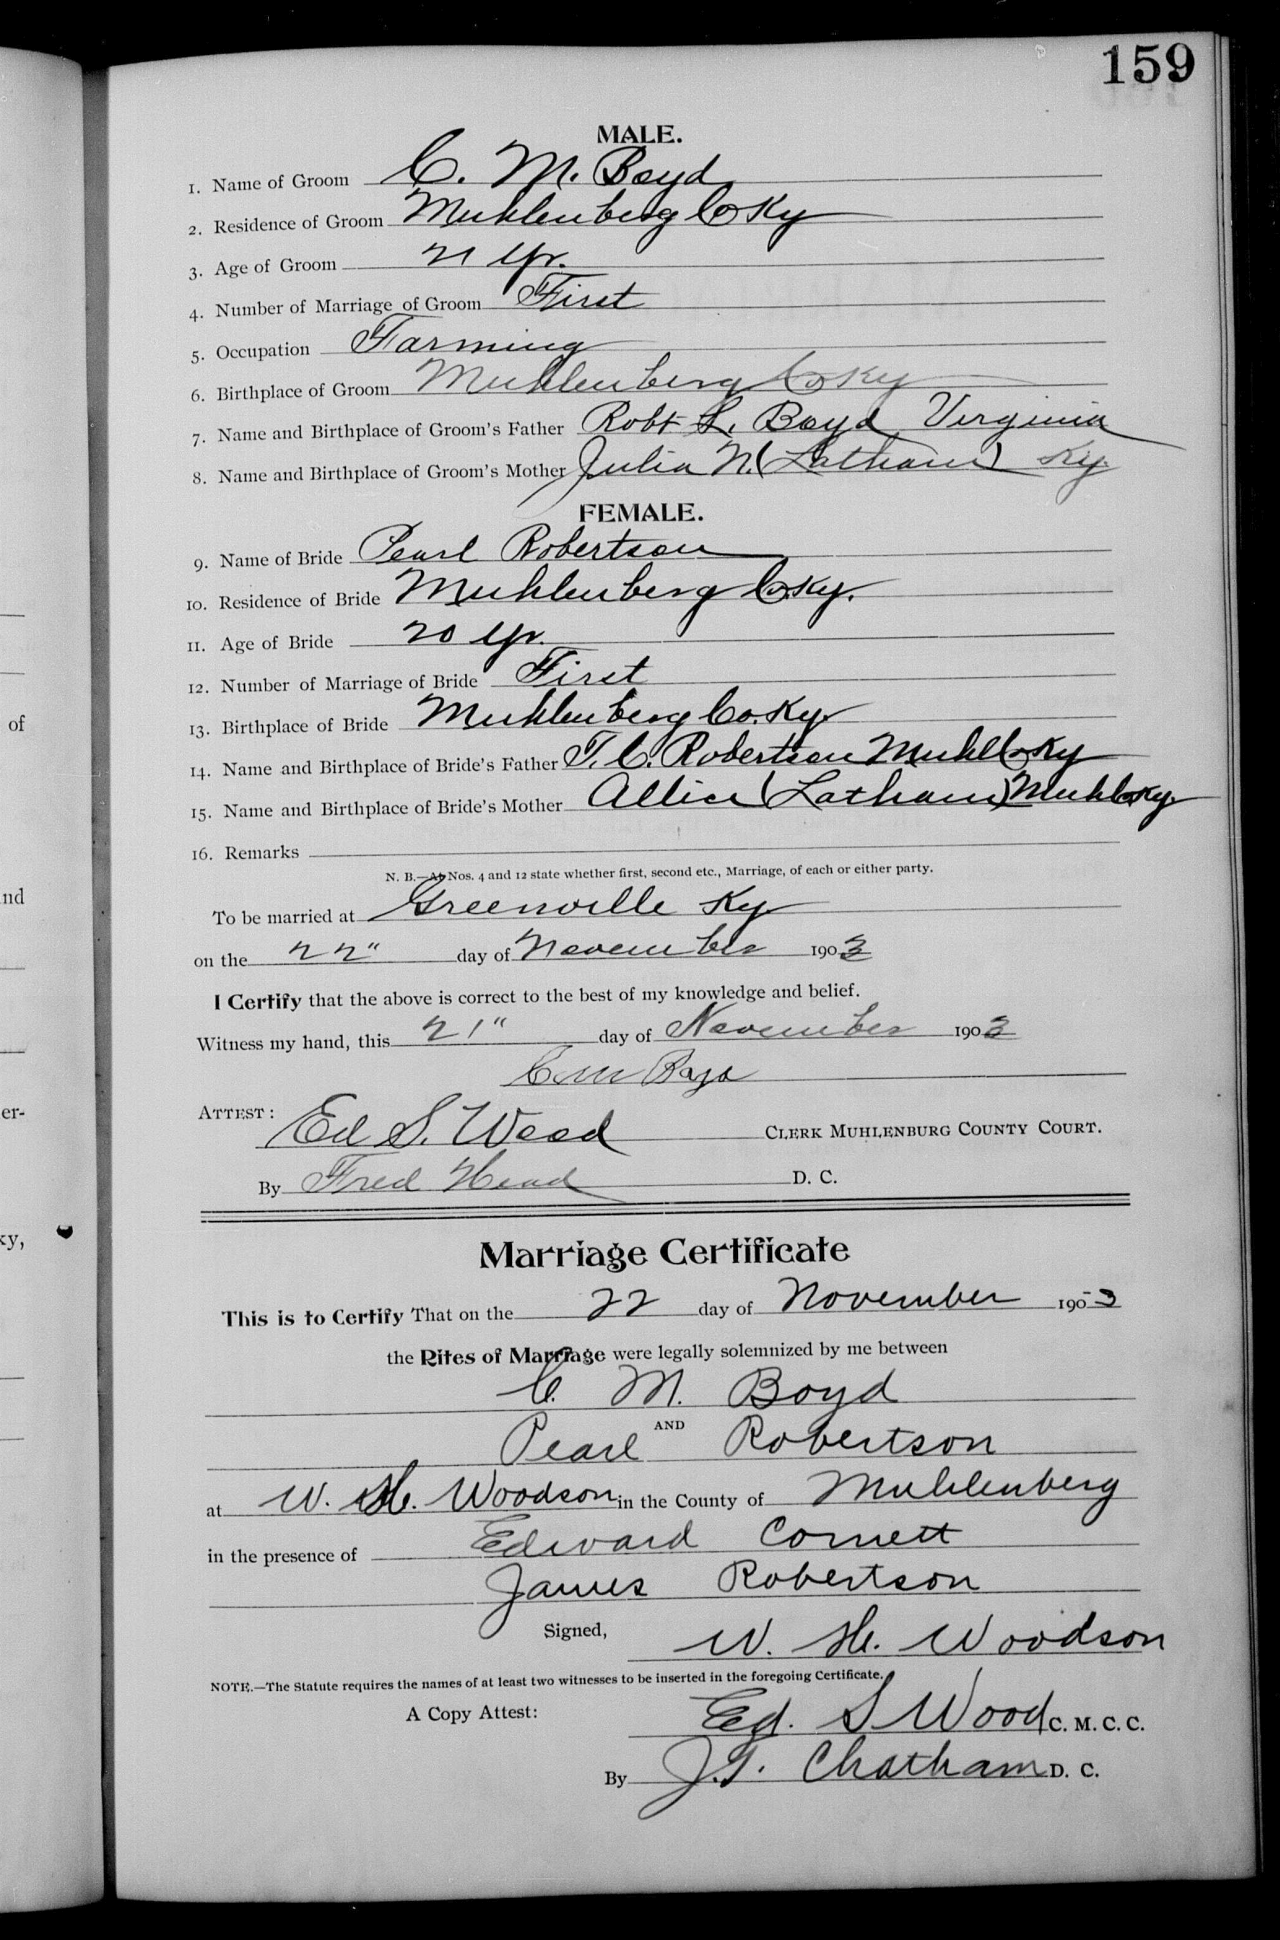 159
MALE.
1. Name of Groom C. M. Boyd
2. Residence of Groom Muhlenberg Co Ky
3. Age of Groom 21 yr.
4. Number of Marriage of Groom First
5. Occupation Farming
6. Birthplace of Groom Muhlenberg Co Ky
7. Name and Birthplace of Groom's Father Robt L. Boyd Virginia
8. Name and Birthplace of Groom's Mother Julia N. (Latham) Ky.
FEMALE.
9. Name of Bride Pearl Robertson
10. Residence of Bride Muhlenberg Co Ky.
11. Age of Bride 20 yr.
12. Number of Marriage of Bride First
13. Birthplace of Bride Muhlenberg Co. Ky.
14. Name and Birthplace of Bride's Father T. C. Robertson Muhl Co Ky
15. Name and Birthplace of Bride's Mother Allice (Latham) Muhl Co Ky.
16. Remarks
N. B.—At Nos. 4 and 12 state whether first, second etc., Marriage, of each or either party.
To be married at Greenville Ky
on the 22" day of November 1903
I Certify that the above is correct to the best of my knowledge and belief.
Witness my hand, this 21" day of November 1903
C M Boyd
ATTEST:
Ed S. Wood CLERK MUHLENBURG COUNTY COURT.
By Fred Head D. C.
Marriage Certificate
This is to Certify That on the 22 day of November 1903
the Rites of Marriage were legally solemnized by me between
C. M. Boyd
AND
Pearl Robertson
at W. H. Woodson in the County of Muhlenberg
in the presence of Edward Cornett
James Robertson
Signed, W. H. Woodson
NOTE.—The Statute requires the names of at least two witnesses to be inserted in the foregoing Certificate.
A Copy Attest: Ed. S Wood C. M. C. C.
By J. T. Chatham D. C.
of
nd
er-
ky,